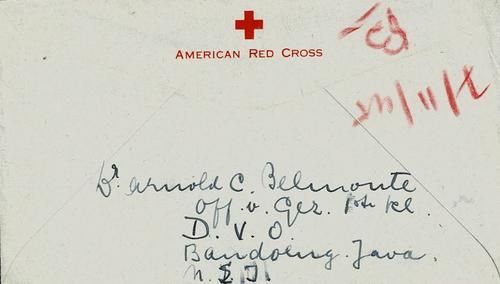 AMERICAN RED CROSS
Dr. Arnold C. Belmonte
Off. v. Gez. 1ste kl.
D. V. O
Bandoeng. Java.
N. E. I.